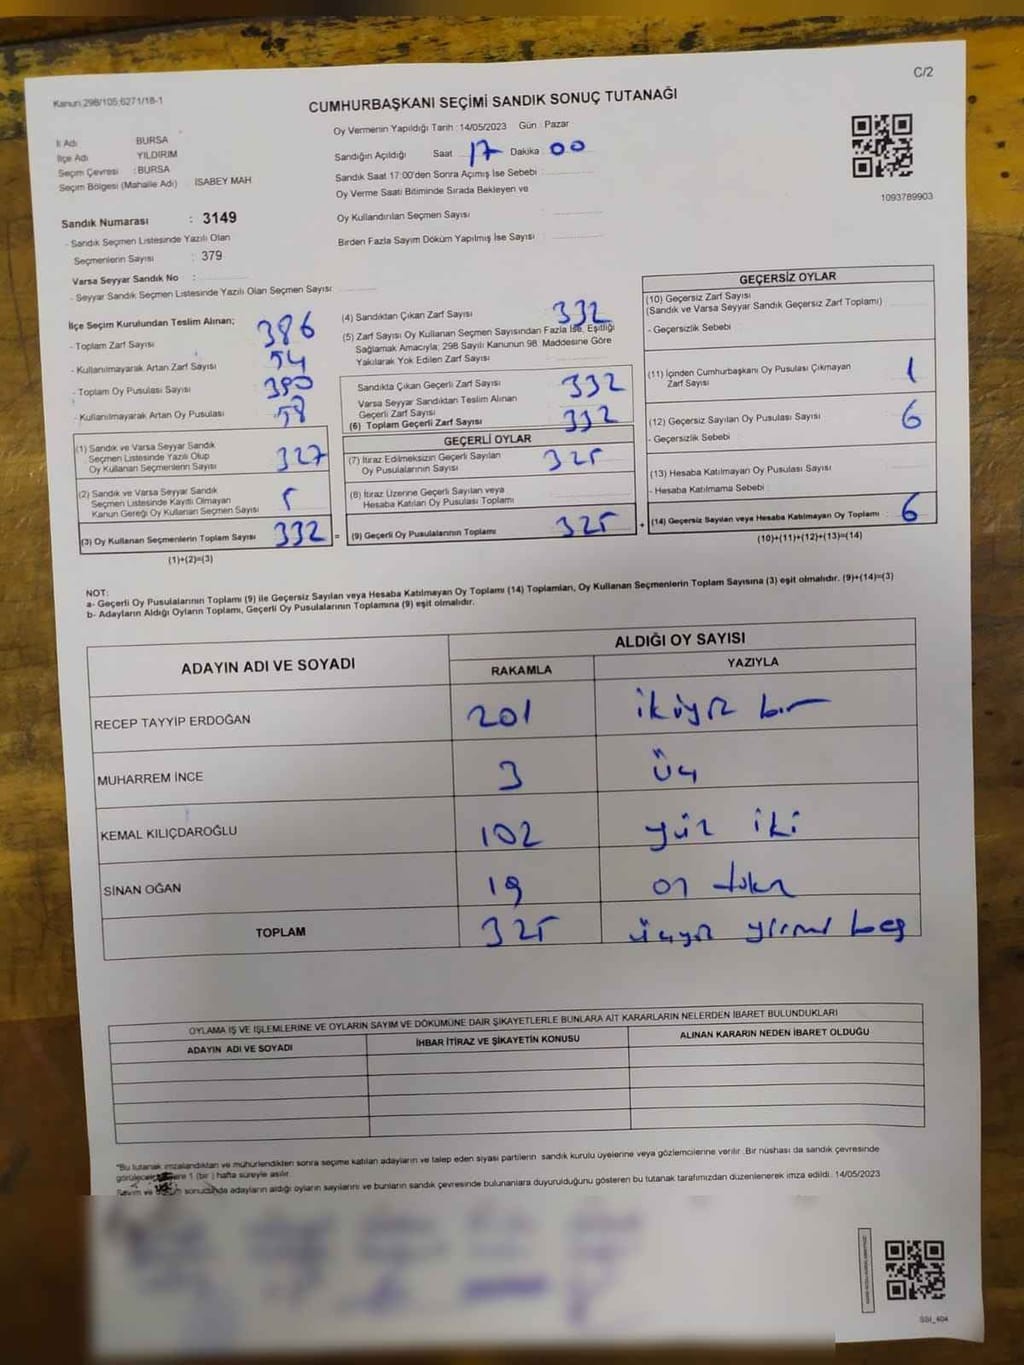 C/2
Kanun 298/105,6271/18-1
CUMHURBAŞKANI SEÇİMİ SANDIK SONUÇ TUTANAĞI
Oy Vermenin Yapıldığı Tarih : 14/05/2023 Gün : Pazar
İl Adı BURSA
İlçe Adı YILDIRIM
Seçim Çevresi : BURSA
Seçim Bölgesi (Mahalle Adı) : İSABEY MAH
Sandığın Açıldığı Saat 17 Dakika 00
Sandık Saat 17:00'den Sonra Açımış İse Sebebi :
Oy Verme Saati Bitiminde Sırada Bekleyen ve
Oy Kullandırılan Seçmen Sayısı :
Birden Fazla Sayım Döküm Yapılmış İse Sayısı :
1093789903
Sandık Numarası : 3149
- Sandık Seçmen Listesinde Yazılı Olan
Seçmenlerin Sayısı : 379
Varsa Seyyar Sandık No :
- Seyyar Sandık Seçmen Listesinde Yazılı Olan Seçmen Sayısı :
İlçe Seçim Kurulundan Teslim Alınan;
- Toplam Zarf Sayısı 386
- Kullanılmayarak Artan Zarf Sayısı 54
- Toplam Oy Pusulası Sayısı 390
- Kullanılmayarak Artan Oy Pusulası 58
(1) Sandık ve Varsa Seyyar Sandık
Seçmen Listesinde Yazılı Olup
Oy Kullanan Seçmenlerin Sayısı 327
(2) Sandık ve Varsa Seyyar Sandık
Seçmen Listesinde Kayıtlı Olmayan
Kanun Gereği Oy Kullanan Seçmen Sayısı 5
(3) Oy Kullanan Seçmenlerin Toplam Sayısı 332 =
(1)+(2)=(3)
(4) Sandıktan Çıkan Zarf Sayısı 332
(5) Zarf Sayısı Oy Kullanan Seçmen Sayısından Fazla İse, Eşitliği
Sağlamak Amacıyla; 298 Sayılı Kanunun 98. Maddesine Göre
Yakılarak Yok Edilen Zarf Sayısı
Sandıkta Çıkan Geçerli Zarf Sayısı 332
Varsa Seyyar Sandıktan Teslim Alınan
Geçerli Zarf Sayısı
(6) Toplam Geçerli Zarf Sayısı 332
GEÇERLİ OYLAR
(7) İtiraz Edilmeksizin Geçerli Sayılan
Oy Pusulalarının Sayısı 325
(8) İtiraz Üzerine Geçerli Sayılan veya
Hesaba Katılan Oy Pusulası Toplamı
(9) Geçerli Oy Pusulalarının Toplamı 325 +
GEÇERSİZ OYLAR
(10) Geçersiz Zarf Sayısı
(Sandık ve Varsa Seyyar Sandık Geçersiz Zarf Toplamı)
- Geçersizlik Sebebi
(11) İçinden Cumhurbaşkanı Oy Pusulası Çıkmayan
Zarf Sayısı 1
(12) Geçersiz Sayılan Oy Pusulası Sayısı 6
- Geçersizlik Sebebi
(13) Hesaba Katılmayan Oy Pusulası Sayısı
- Hesaba Katılmama Sebebi
(14) Geçersiz Sayılan veya Hesaba Katılmayan Oy Toplamı 6
(10)+(11)+(12)+(13)=(14)
NOT:
a- Geçerli Oy Pusulalarının Toplamı (9) ile Geçersiz Sayılan veya Hesaba Katılmayan Oy Toplamı (14) Toplamları, Oy Kullanan Seçmenlerin Toplam Sayısına (3) eşit olmalıdır. (9)+(14)=(3)
b- Adayların Aldığı Oyların Toplamı, Geçerli Oy Pusulalarının Toplamına (9) eşit olmalıdır.
ADAYIN ADI VE SOYADI ALDIĞI OY SAYISI
RAKAMLA YAZIYLA
RECEP TAYYİP ERDOĞAN 201 ikiyüz bir
MUHARREM İNCE 3 üç
KEMAL KILIÇDAROĞLU 102 yüz iki
SİNAN OĞAN 19 on dokuz
TOPLAM 325 üçyüz yirmi beş
OYLAMA İŞ VE İŞLEMLERİNE VE OYLARIN SAYIM VE DÖKÜMÜNE DAİR ŞİKAYETLERLE BUNLARA AİT KARARLARIN NELERDEN İBARET BULUNDUKLARI
ADAYIN ADI VE SOYADI İHBAR İTİRAZ VE ŞİKAYETİN KONUSU ALINAN KARARIN NEDEN İBARET OLDUĞU
*Bu tutanak imzalandıktan ve mühürlendikten sonra seçime katılan adayların ve talep eden siyasi partilerin sandık kurulu üyelerine veya gözlemcilerine verilir. Bir nüshası da sandık çevresinde
1 (bir) hafta süreyle asılır.
Sayım ve sonucunda adayların aldığı oyların sayılarını ve bunların sandık çevresinde bulunanlara duyurulduğunu gösteren bu tutanak tarafımızdan düzenlenerek imza edildi. 14/05/2023